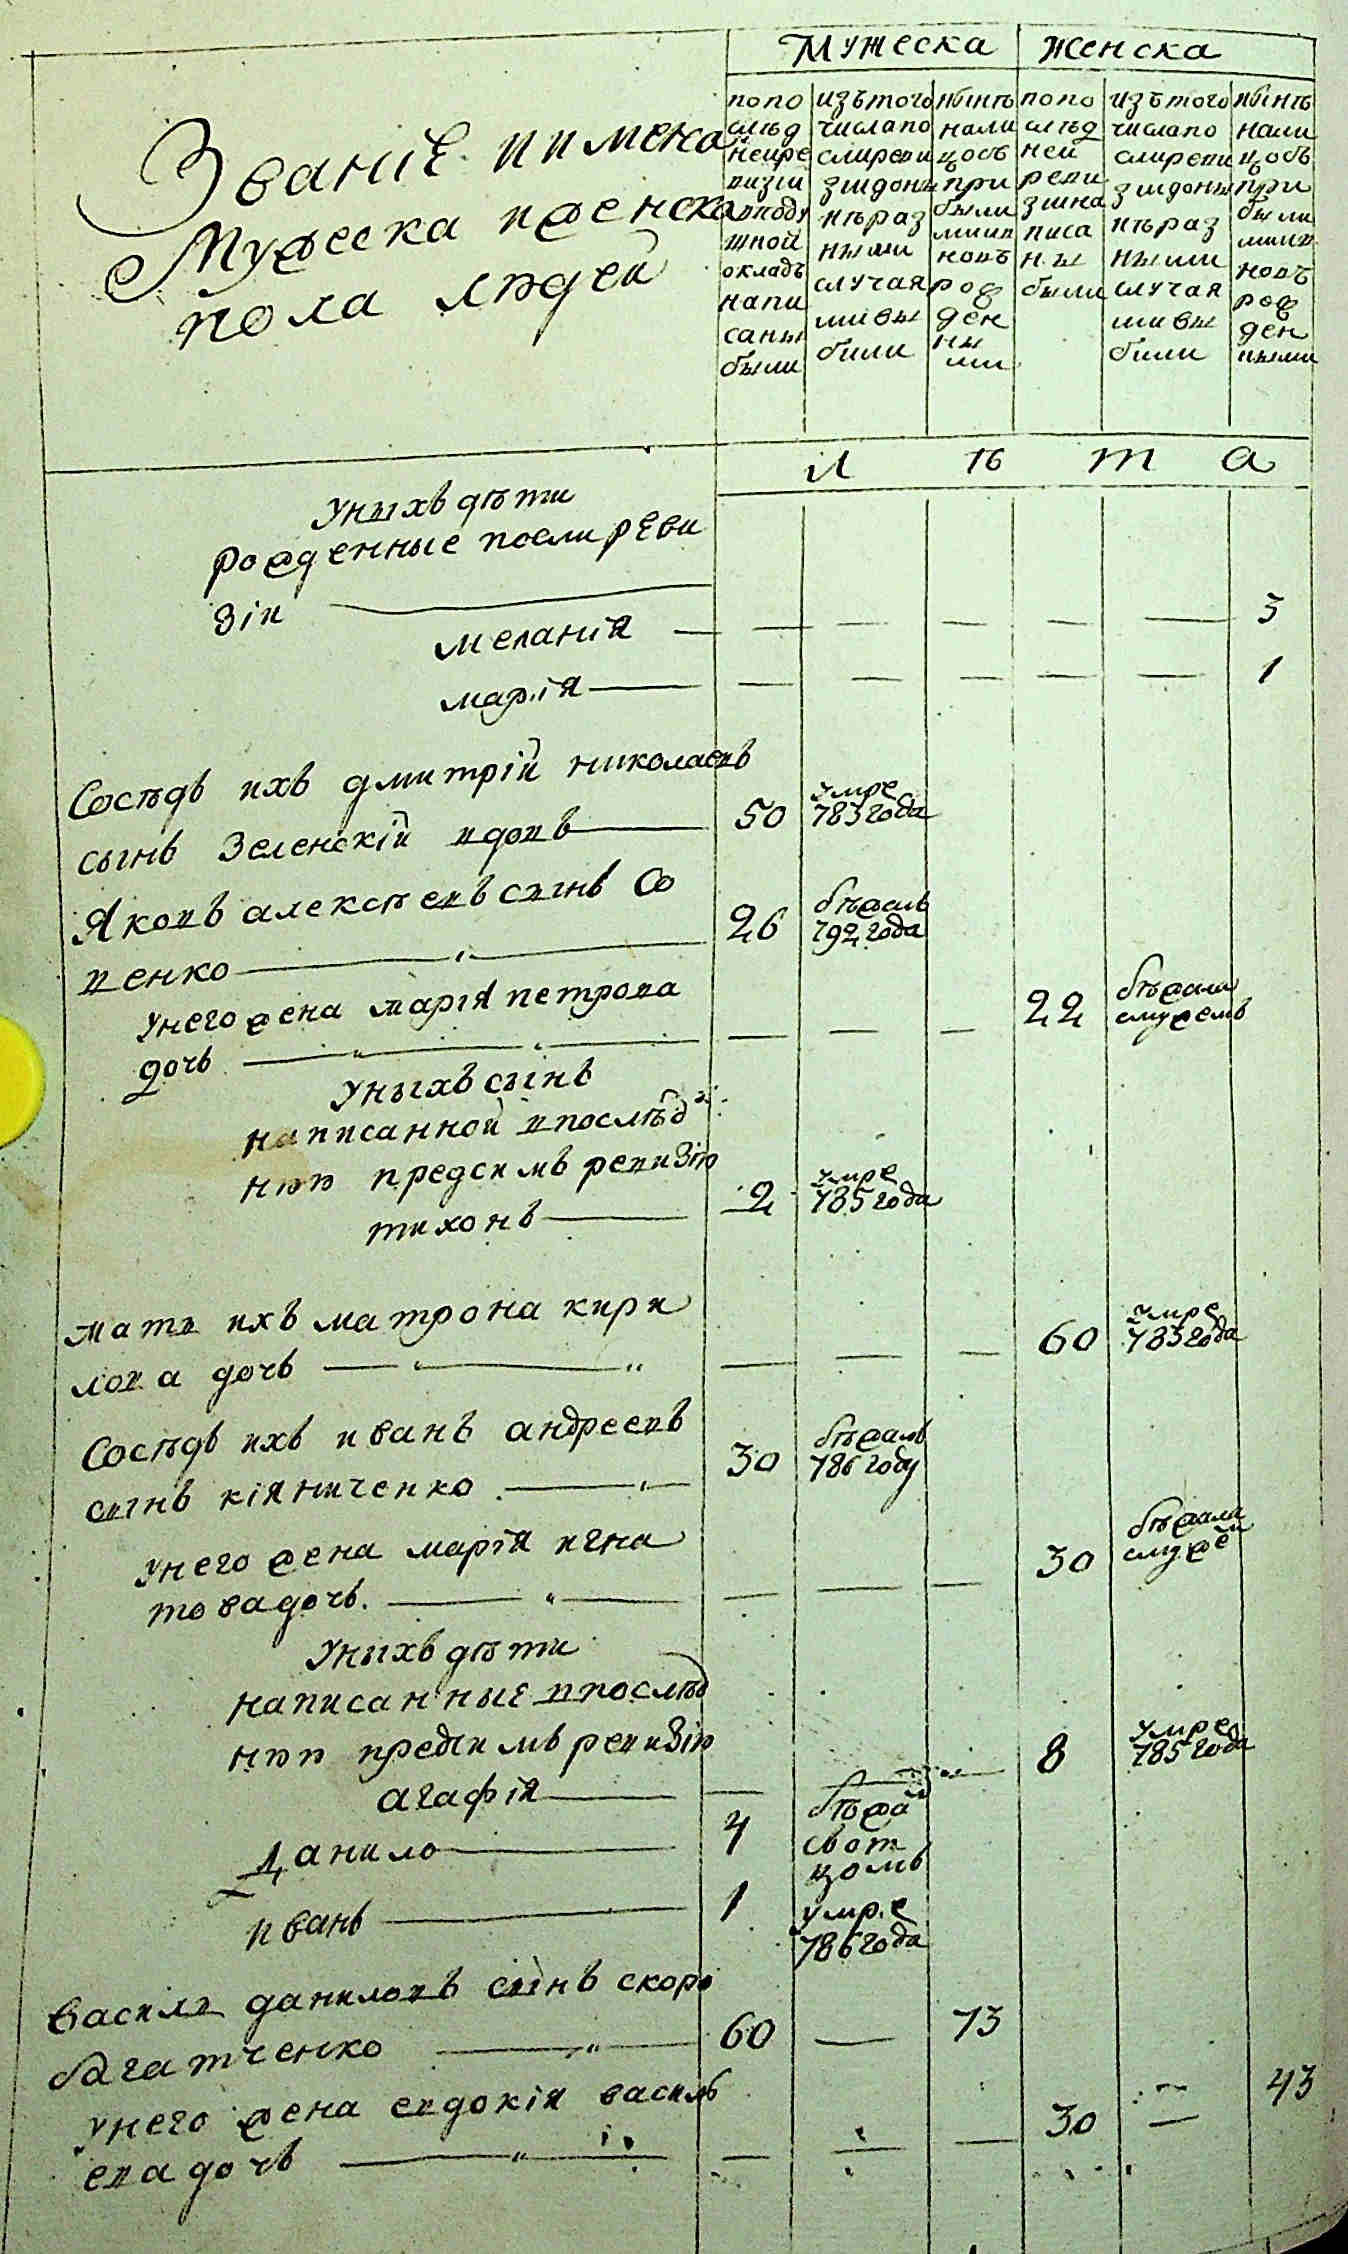 Мужеска Женска
Званіе и имена
Мужеска и женска
пола людей
попо
слѣд
ней ре
визіи
в поду
шной
окладъ
напи
саны
были
изъ того
числа по
сли реви
зіи до ны
нѣ раз
ными
случая
ми вы
были
нынѣ
нали
цо съ
при
были
ми и в
новъ
рож
ден
ны
ми
попо
слѣд
ней
реви
зіи на
писа
ны
были
изъ того
числа по
сли реви
зіи до ны
нѣ раз
ными
случая
ми вы
били
нынѣ
нали
цо съ
при
были
ми и в
новъ
рож
ден
ными
Л ѣ т а
У ныхъ дѣти
рожденные после реви
зіи
меланія — — — — — — 3
марія — — — — — — 1
Сосѣдъ ихъ дмитрій николаевъ
сынъ Зеленскій вдовъ — 50 умре 783 года
Яковъ алексѣевъ сынъ Со
венко — 26 бѣжалъ 792 года
у него жена марія петрова
дочь — — — — 22 бѣжала с мужемъ
У ныхъ сынъ
написанной в послѣд
нюю предсимъ ревизію
тихонъ — 2 умре 785 года
мать ихъ матрона кири
лова дочь — — — — 60 умре 783 года
Сосѣдъ ихъ иванъ андреевъ
сынъ кіяниченко — 30 бѣжалъ 786 году
у него жена марія игна
това дочь. — — — — 30 бѣжала с муже м
У ныхъ дѣти
написанные в послѣд
нюю предсимъ ревизію
агафія — — — — 8 умре 785 года
Данило — 4 бѣжа л
съ от
цомъ
иванъ — 1 умре
786 года
Василь даниловъ сынъ скоро
багатченко — 60 — 73
у него жена евдокія василь
ева дочь — — — — 30 — 43